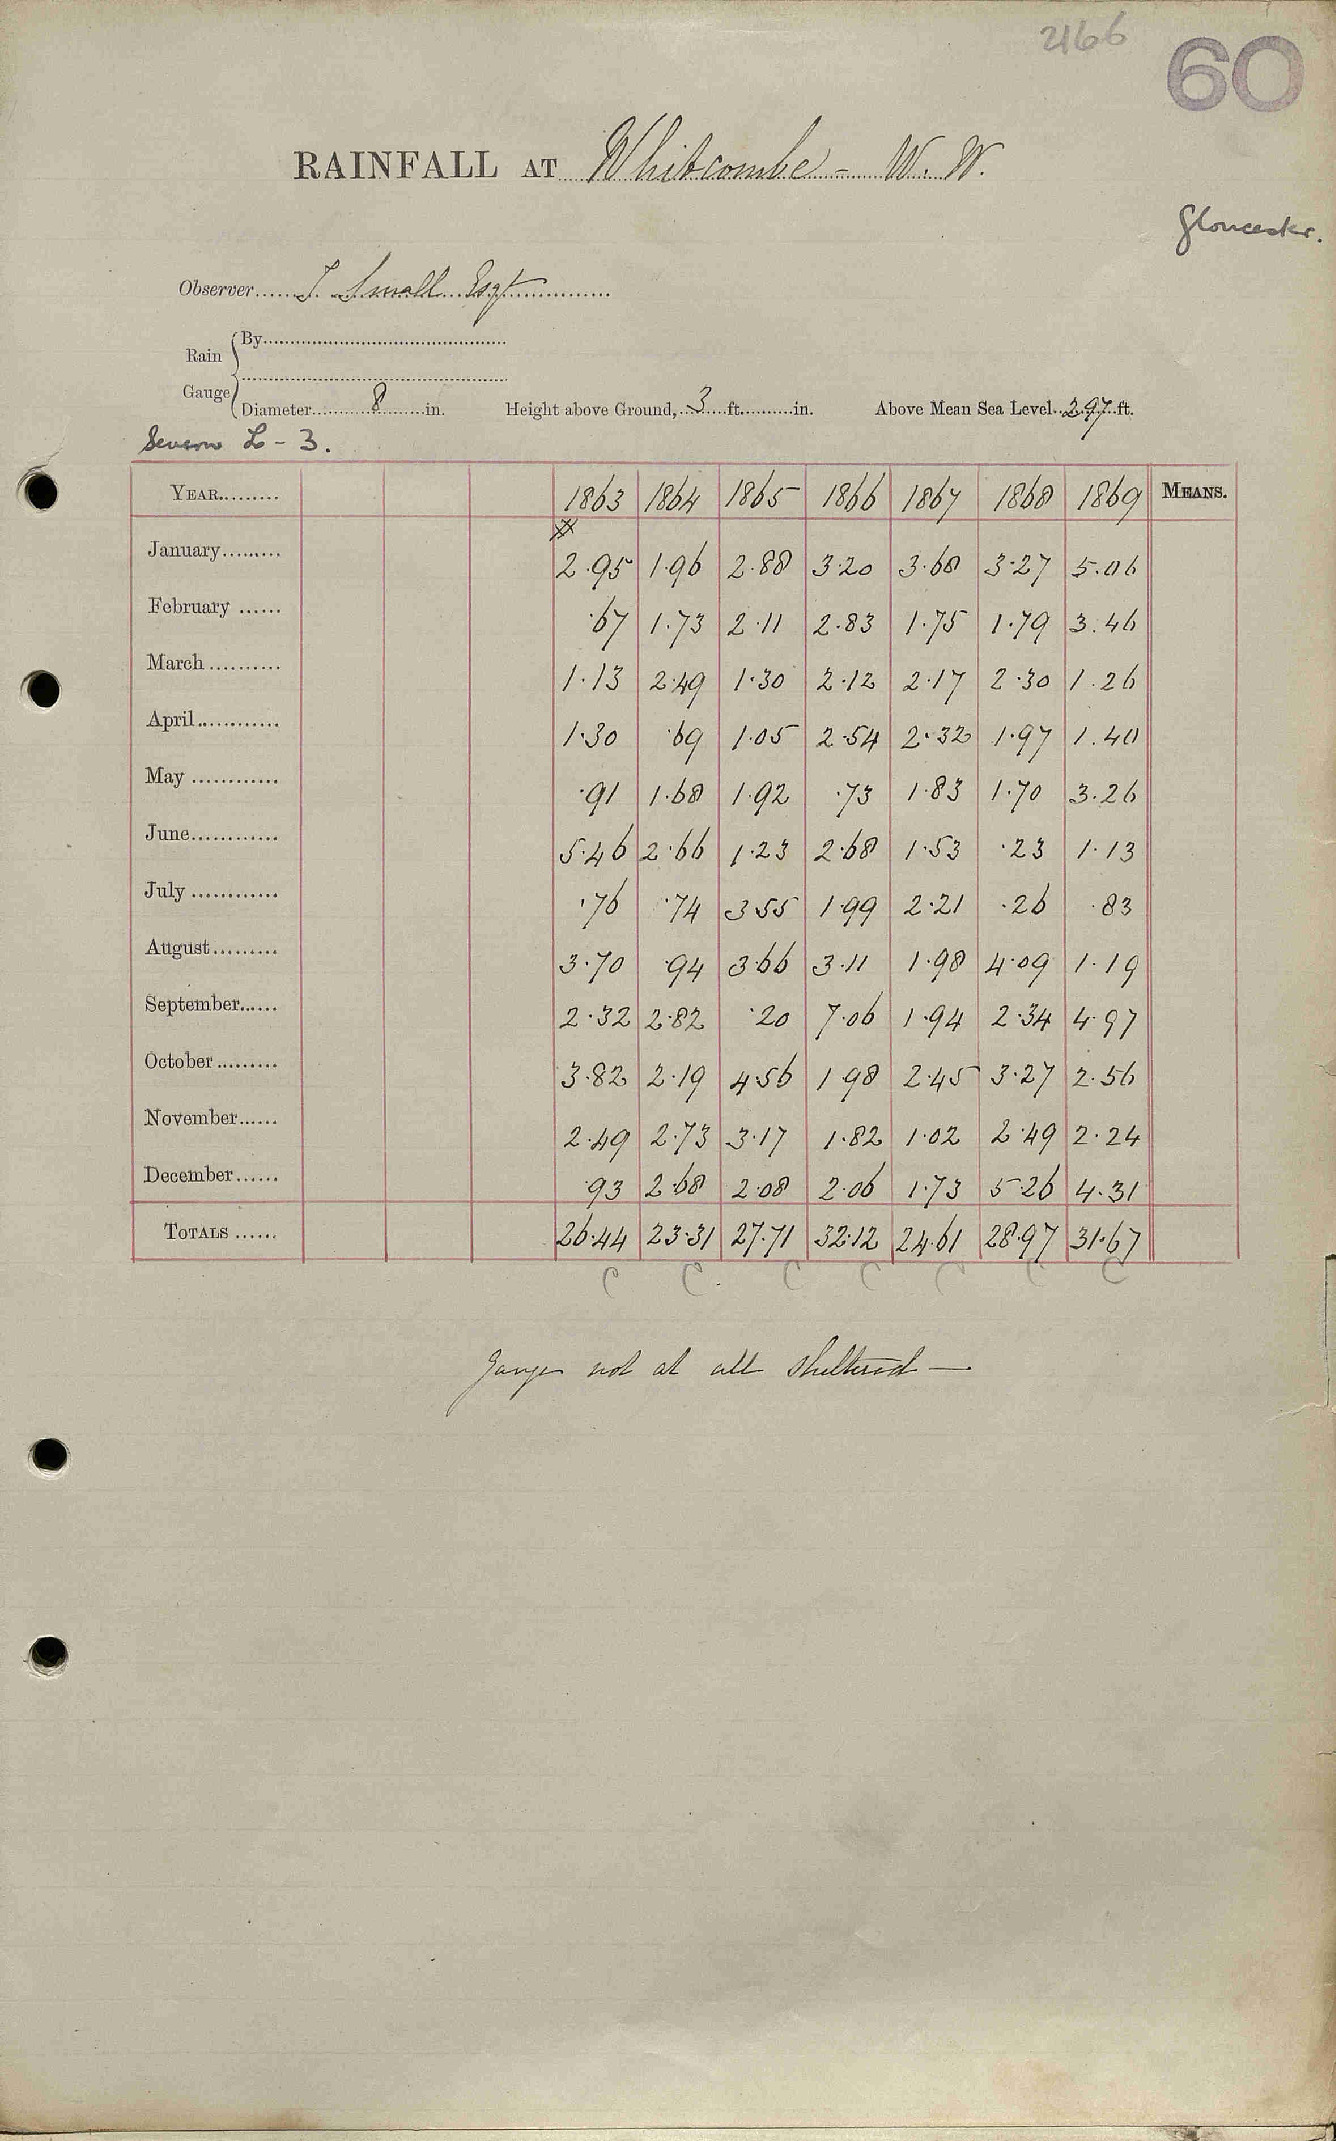 2166
60
RAINFALL AT Whitcombe - W. W.
Gloucester.
Observer......J. Small Esqr
Rain Gauge
By
Diameter 8 in. Height above Ground, 3 ft. in. Above Mean Sea Level 297 ft.
L - 3.
YEAR 1863 1864 1865 1866 1867 1868 1869 MEANS.
January 2.95 1.96 2.88 3.20 3.68 3.27 5.06
February .67 1.73 2.11 2.83 1.75 1.79 3.46
March 1.13 2.49 1.30 2.12 2.17 2.30 1.26
April 1.30 .69 1.05 2.54 2.32 1.97 1.40
May .91 1.68 1.92 .73 1.83 1.70 3.26
June 5.46 2.66 1.23 2.68 1.53 .23 1.13
July .76 .74 3.55 1.99 2.21 .26 .83
August 3.70 .94 3.66 3.11 1.98 4.09 1.19
September 2.32 2.82 .20 7.06 1.94 2.34 4.97
October 3.82 2.19 4.56 1.98 2.45 3.27 2.56
November 2.49 2.73 3.17 1.82 1.02 2.49 2.24
December .93 2.68 2.08 2.06 1.73 5.26 4.31
TOTALS 26.44 23.31 27.71 32.12 24.61 28.97 31.67
C C C C C C C
Gauge not at all sheltered —